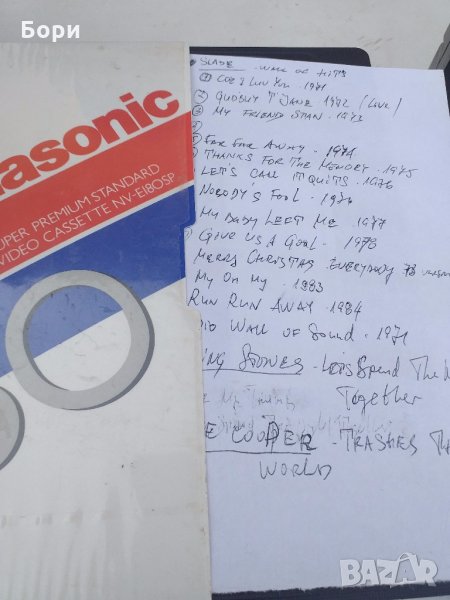 Бори
Panasonic
SUPER PREMIUM STANDARD
VIDEO CASSETTE NV-E180SP
SLADE - WALL OF HITS
COZ I LUV YOU - 1971
GUDBUY T'JANE 1972 (LIVE)
MY FRIEND STAN - 1973
FAR FAR AWAY - 1974
THANKS FOR THE MEMORY - 1975
LET'S CALL IT QUITS - 1976
NOBODY'S FOOL - 1976
MY BABY LEFT ME - 1977
GIVE US A GOAL - 1978
MERRY CHRISTMAS EVERYBODY 73
MY OH MY - 1983
RUN RUN AWAY - 1984
WALL OF SOUND - 1971
ING STONES - LETS SPEND THE N
TOGETHER
E COOPER - TRASHES THE
WORLD
BAZAR